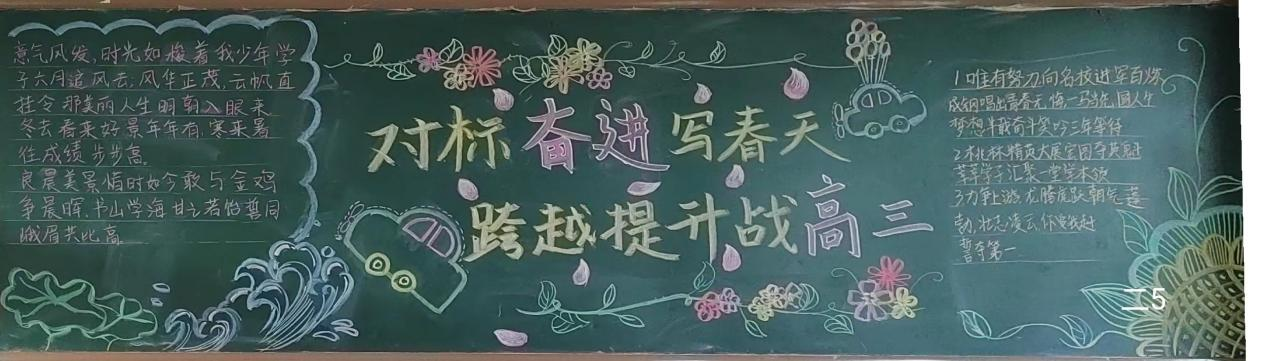 意气风发,时光如梭着我少年学
子六月追风去;风华正茂,云帆直
挂令那美丽人生明朝入眼来
冬去春来好景年年有,寒来暑
往成绩步步高。
良晨美景惜时如今敢与金鸡
争晨晖,书山学海甘之若饴誓同
峨眉共比高
对标奋进写春天
跨越提升战高三
1.唯有努力向名校进军百炼
成钢唱出青春无悔一马当先,圆人生
梦想半载奋斗笑吟三年等待
2.木化林精英大展宏图夺英魁
莘莘学子汇聚一堂学本领
3力争上游,龙腾虎跃朝气蓬
勃,壮志凌云,你追我赶
誓夺第一
二5